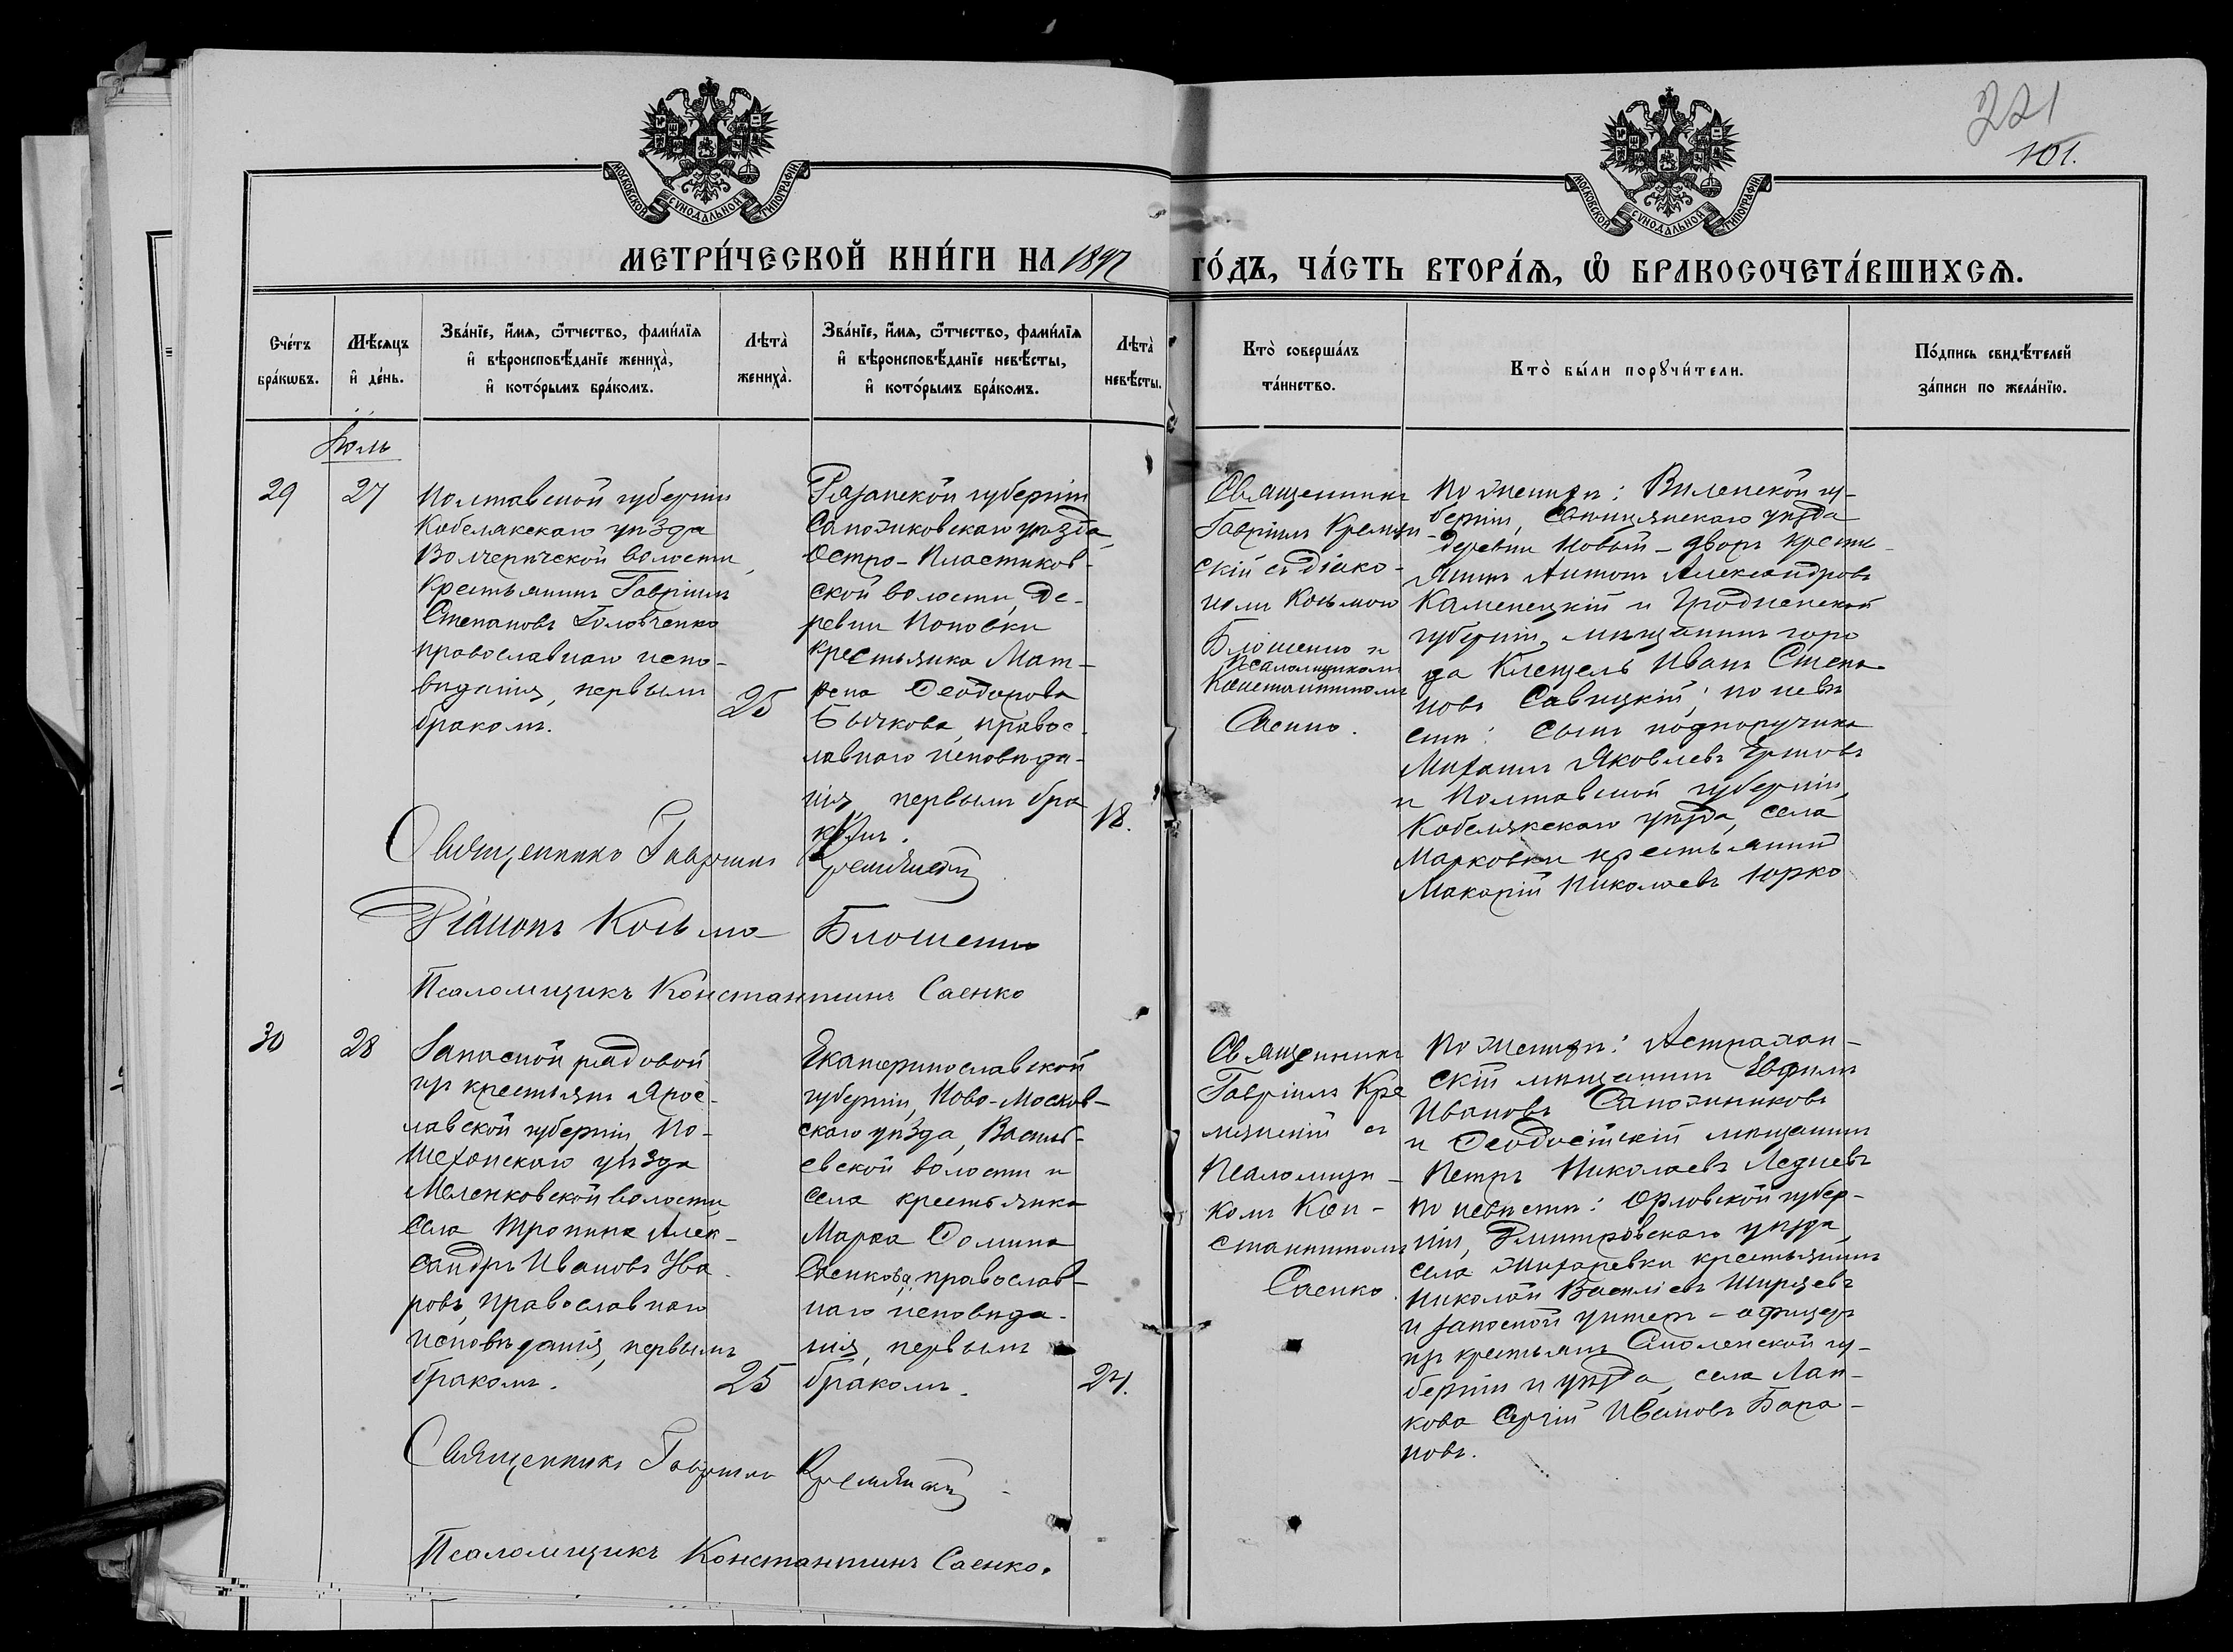 221
101.
МОСКОВСКОЙ СѴНОДАЛЬНОЙ ТИПОГРАФІИ
МОСКОВСКОЙ СѴНОДАЛЬНОЙ ТИПОГРАФІИ
МЕТРИ́ЧЕСКОЙ КНИ́ГИ НА 1897
ГО́ДЪ, ЧА́СТЬ ВТОРА́Ѧ, Ѡ҆ БРАКОСОЧЕТА́ВШИХСѦ.
Сче́тъ
бра́кѡвъ.
Мѣ́сяцъ
и҆ де́нь.
Зва́нїе, и҆́мя, ѻ҆́тчество, фами́лїя
и҆ вѣроисповѣ́данїе жениха̀,
и҆ кото́рымъ бра́комъ.
Лѣта̀
жениха̀.
Зва́нїе, и҆́мя, ѻ҆́тчество, фами́лїя
и҆ вѣроисповѣ́данїе невѣ́сты,
и҆ кото́рымъ бра́комъ.
Лѣта̀
невѣ́сты.
Кто̀ соверша́лъ
та́инство.
Кто̀ бы́ли порꙋчи́тели.
По́дпись свидѣ́телей
за́писи по жела́нїю.
Іюль
29
27
Полтавской губерніи
Кобелякскаго уѣзда
волости,
крестьянинъ Гавріилъ
Степановъ Головченко
православнаго испо-
вѣданія, первымъ
бракомъ.
25
Рязанской губерніи
Сапожковскаго уѣзда,
Остро-Пластиков-
ской волости, де-
ревни Поповки
крестьянка Мат-
рена Ѳеодорова
Бычкова, правос-
лавнаго исповѣда-
нія, первымъ бра
комъ.
18.
Священникъ
Гавріилъ Кремян-
скій съ діако-
номъ Козьмою
Блошенко и
псаломщикомъ
Константиномъ
Саенко.
По женихѣ: Виленской гу-
берніи, Свенцянскаго уѣзда
деревни Новый-дворъ кресть-
янинъ Антонъ Александровъ
Каменецкій и Гродненской
губерніи, мѣщанинъ горо
да Клещель Иванъ Степа-
новъ Савицкій; по невѣ
стѣ: сынъ подпоручика
Михаилъ Яковлевъ
и Полтавской губерніи,
Кобелякскаго уѣзда, села
Марковки крестьянинъ
Макарій Николаевъ Юрко
Священникъ Гавріилъ Кремянскій
Діаконъ Козьма Блошенко
Псаломщикъ Константинъ Саенко
30
28
Запасной рядовой
изъ крестьянъ Ярос-
лавской губерніи, По-
шехонскаго уѣзда
волости
села Тропина Алек-
сандръ Ивановъ Ува
ровъ, православнаго
исповѣданія, первымъ
бракомъ.
25
Екатеринославской
губерніи, Ново-Москов-
скаго уѣзда, Василь-
евской волости и
села крестьянка
Марѳа Ѳомина
Саенкова, православ-
наго исповѣда-
нія, первымъ
бракомъ.
24.
Священникъ
Гавріилъ Кре
мянскій съ
псаломщи-
комъ Кон-
стантиномъ
Саенко.
По женихѣ: Астрахан-
скій мѣщанинъ Ефимъ
Ивановъ Сапожниковъ
и Ѳеодосійскій мѣщанинъ
Петръ Николаевъ Ледневъ
по невѣстѣ: Орловской губер-
ніи, Дмитровскаго уѣзда,
села крестьянинъ
Николай Василіевъ Ширяевъ
и запасной унтеръ-офицеръ
изъ крестьянъ Смоленской гу-
берніи и уѣзда, села Лап-
кова Сергій Ивановъ Бара-
новъ.
Священникъ Гавріилъ Кремянскій
Псаломщикъ Константинъ Саенко.